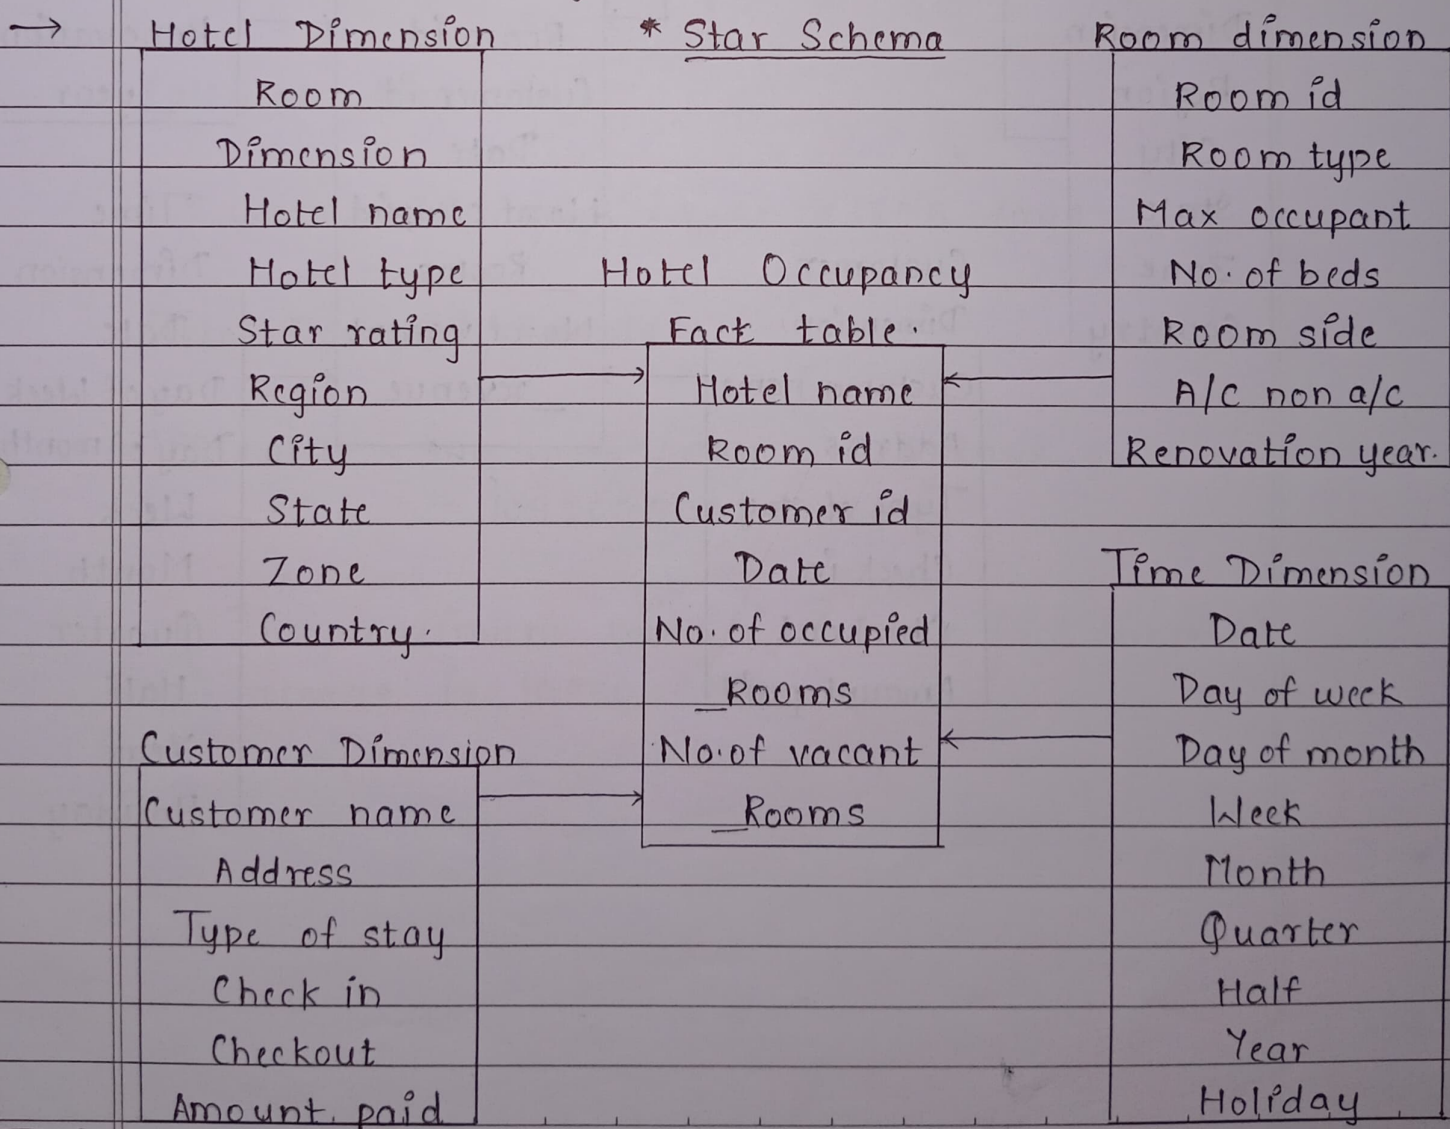 → Hotel Dimension
Room
Dimension
Hotel name
Hotel type
Star rating
Region
City
State
Zone
Country.
Customer Dimension
Customer name
Address
Type of stay
Check in
Checkout
Amount paid
* Star Schema
Hotel Occupancy
Fact table.
Hotel name
Room id
Customer id
Date
No. of occupied
_Rooms
No. of vacant
_Rooms
Room dimension
Room id
Room type
Max occupant
No. of beds
Room side
A/C non a/c
Renovation year.
Time Dimension
Date
Day of week
Day of month
Week
Month
Quarter
Half
Year
Holiday